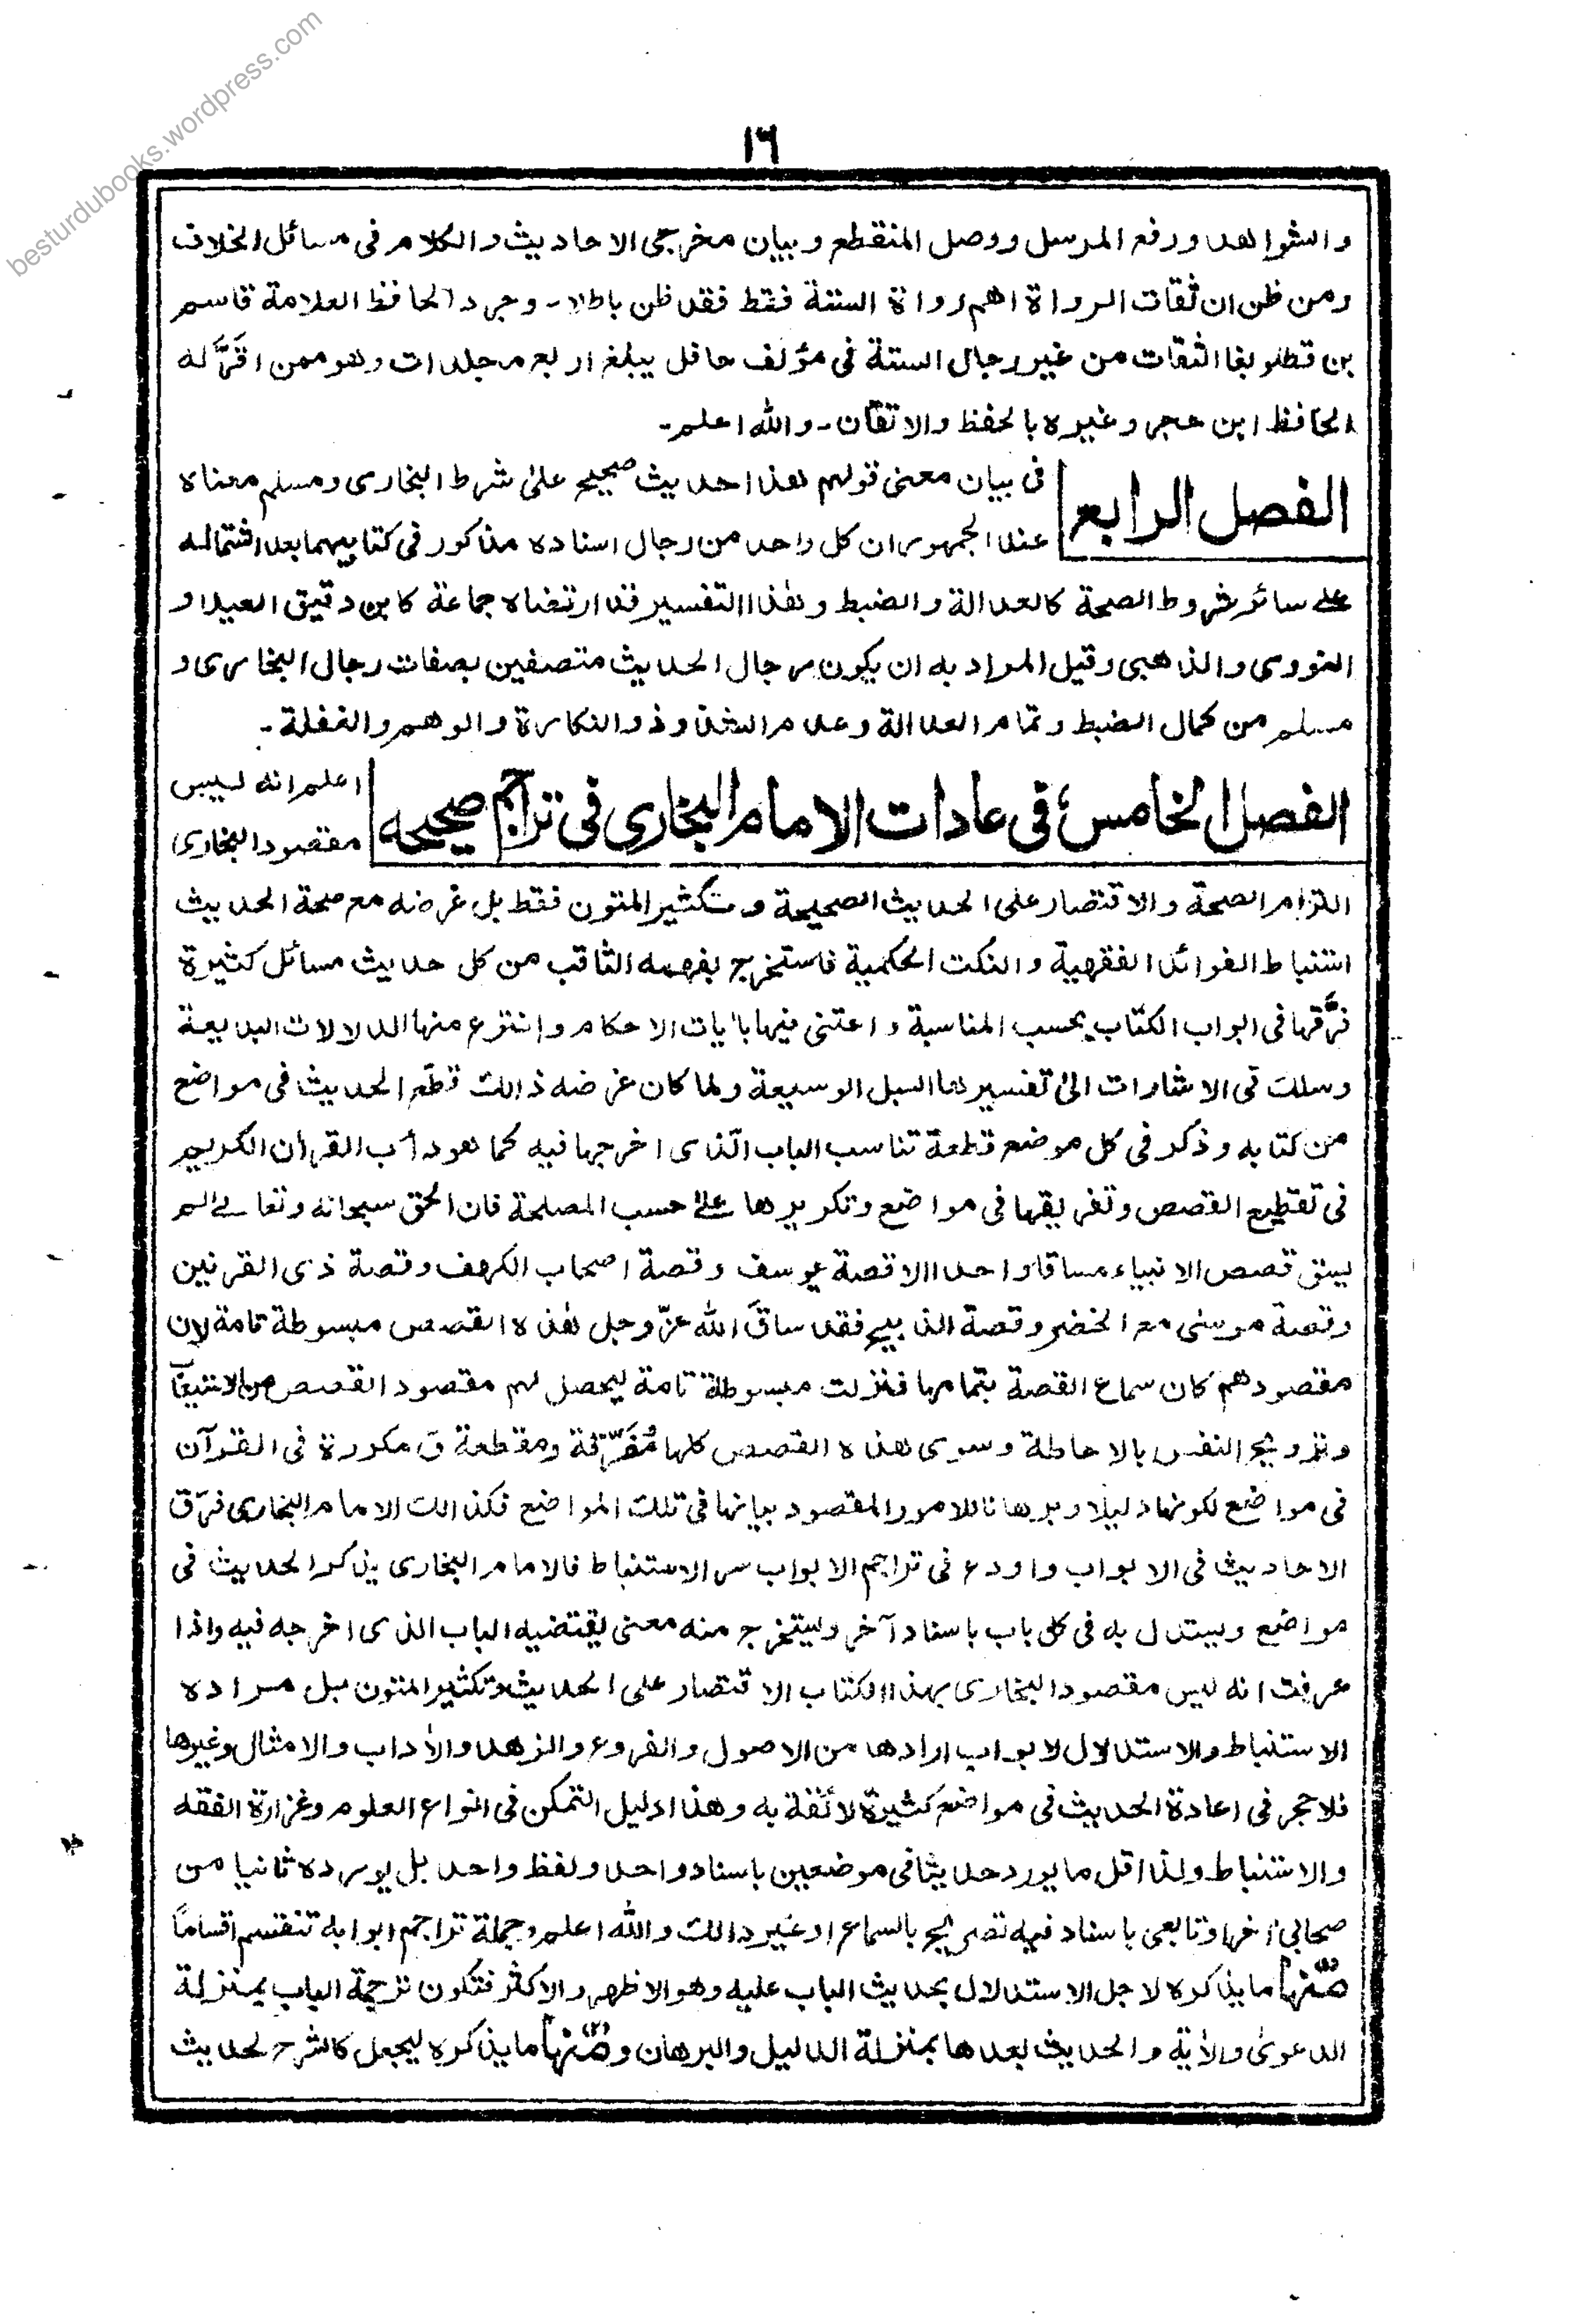 besturdubooks.wordpress.com
١٦
والشواهد ورفع المرسل ووصل المنقطع وبيان مخرجى الاحاديث والكلام فى مسائل الخلاف
ومن ظن ان ثقات الرواة اهم رواة الستة فقط فقد ظن باطلا۔ وجرد الحافظ العلامة قاسم
بن قطلوبغا الثقات من غير رجال الستة فى مؤلف حافل يبلغ اربع مجلدات وهو ممن اقَرَّ له
الحافظ ابن حجر وغيره بالحفظ والاتقان۔ والله اعلم۔
الفصل الرابع فى بيان معنى قولهم هذا حديث صحيح على شرط البخارى ومسلم معناه
عند الجمهور ان كل واحد من رجال اسناده مذكور فى كتابيهما بعد اشتماله
على سائر شروط الصحة كالعدالة والضبط وهذا التفسير قد ارتضاه جماعة كابن دقيق العيد او
النووى والذهبى وقيل المراد به ان يكون رجال الحديث متصفين بصفات رجال البخارى و
مسلم من كمال الضبط وتمام العدالة وعدم الشذوذ والنكارة والوهم والغفلة۔
الفصل الخامس فى عادات الامام البخارى فى تراجم صحيحه اعلم انه ليس
مقصود البخارى
التزام الصحة والاقتصار على الحديث الصحيحة وتكثير المتون فقط بل غرضه مع صحة الحديث
استنباط الفوائد الفقهية والنكت الحكمية فاستخرج بفهمه الثاقب من كل حديث مسائل كثيرة
فرَّقها فى ابواب الكتاب بحسب المناسبة واعتنى فيها بآيات الاحكام وانتزع منها الدلالات البديعة
وسلك فى الاشارات الى تفسيرها السبل الوسيعة ولما كان غرضه ذالك قطّع الحديث فى مواضع
من كتابه وذكر فى كل موضع قطعة تناسب الباب الّذى اخرجها فيه كما هو دأب القرأن الكريم
فى تقطيع القصص وتفريقها فى مواضع وتكريرها على حسب المصلحة فان الحق سبحانه وتعالى لم
يسق قصص الانبياء مساقا واحدا الا قصة يوسف وقصة اصحاب الكهف وقصة ذى القرنين
وقصة موسى مع الخضر وقصة الذبيح فقد ساقَ الله عزّ وجل هذه القصص مبسوطة تامة لان
مقصودهم كان سماع القصة بتمامها فنزلت مبسوطة تامة ليحصل لهم مقصود القصص من الاستيعاب
وترويح النفس بالاحاطة وسوى هذه القصص كلها مُفَرَّقة ومقطعة وَ مكررة فى القرآن
فى مواضع لكونها دليلا وبرهانا للامور المقصود بيانها فى تلك المواضع فكذالك الامام البخارى فرّق
الاحاديث فى الابواب واودع فى تراجم الابواب سر الاستنباط فالامام البخارى يذكر الحديث فى
مواضع ويستدل به فى كل باب باسناد آخر ويستخرج منه معنى يقتضيه الباب الذى اخرجه فيه واذا
عرفت انه ليس مقصود البخارى بهذا الكتاب الاقتصار على الحديث وتكثير المتون بل مراده
الاستنباط والاستدلال لابواب ارادها من الاصول والفروع والزهد والأداب والامثال وغيرها
فلا حجر فى اعادة الحديث فى مواضع كثيرة لائقة به وهذا دليل التمكن فى انواع العلوم وغزارة الفقه
والاستنباط ولذا قل ما يورد حديثا فى موضعين باسناد واحد ولفظ واحد بل يورده ثانيا من
صحابى اخر او تابعى باسناد فيه تصريح بالسماع او غير ذالك والله اعلم وجملة تراجم ابوابه تنقسم اقسامًا
(١) فمنها ما يذكره لاجل الاستدلال بحديث الباب عليه وهو الاظهر والاكثر فتكون ترجمة الباب بمنزلة
الدعوىٰ والأية والحديث بعدها بمنزلة الدليل والبرهان (٢) ومنها ما يذكره ليجعل كالشرح لحديث